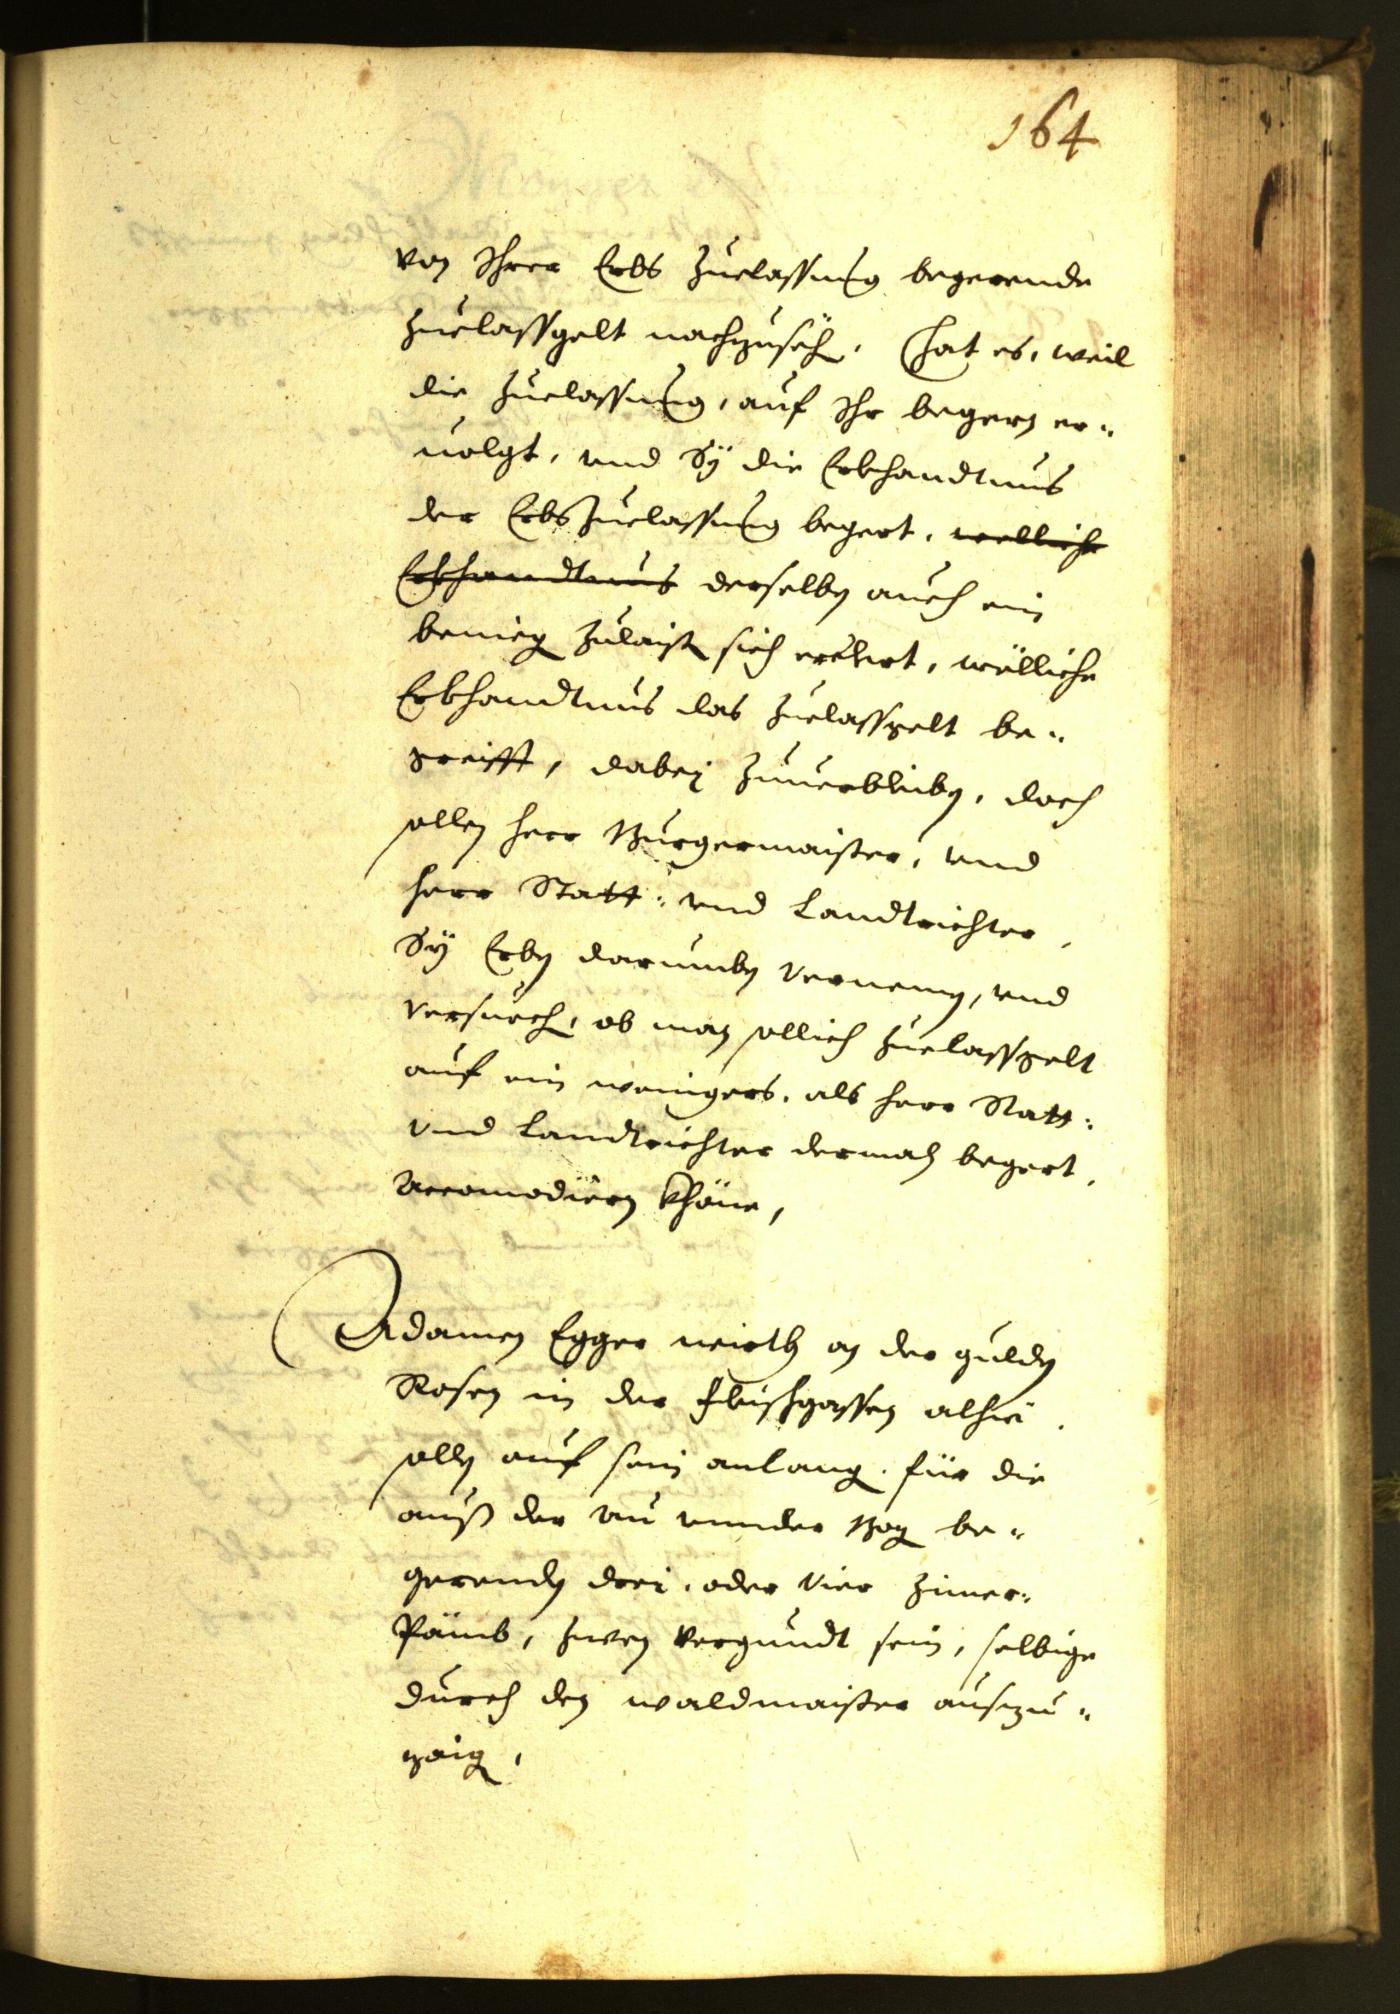 164
von Ihrer Erbs Zuelassung begerende
Zuelassgelt nachzusech. Hat es, weil
die Zuelassung, auf Ihr begern er¬
uolgt, vnd Sÿ die Erkhandtnus
der Erbs Zuelassung begert, welliche
Erkhandtnus derselben auch ein
benieg Zulaist sich erclert, wölliche
Erkhandtnus das Zuelassgelt be¬
greifft, dabei Zuuerbleiben, doch
sollen herr Burgermaister, vnd
herr Statt: vnd Landtrichter,
Sÿ Erben darumben vernemen, vnd
versuech, ob man sollich Zuelassgelt
auf ein wenigers, als herr Statt:
vnd Landtrichter dermaln begert,
Accomodiern khöne,
Adamen Egger wirth an der gulden
Rosen in der fleischgassen alhie,
sollen auf sein anlang, für die
auß der au vnnder Bozn be¬
gerenden drei, oder vier Zimer¬
Pämb, zwen vergundt sein, selbige
durch den waldmaister auszu¬
zaign,